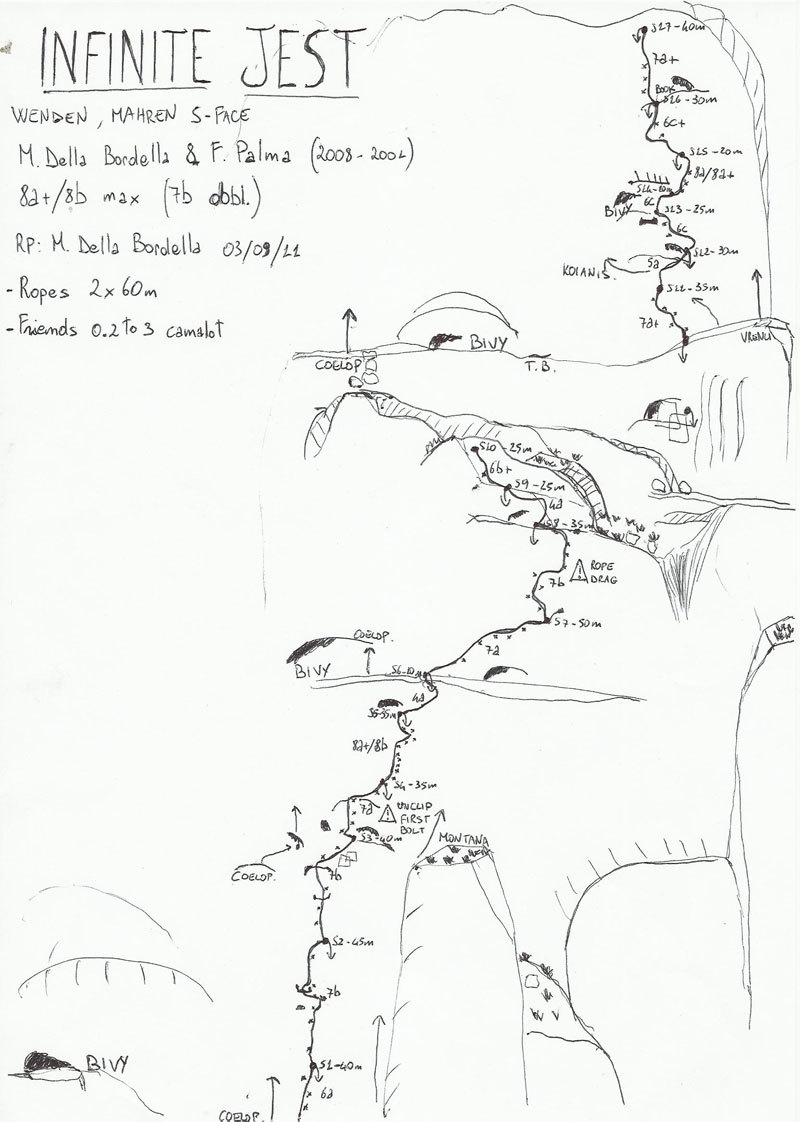 INFINITE JEST
WENDEN, MAHREN S-FACE
M. Della Bordella & F. Palma (2008-2001)
8a+/8b max (7b obbl.)
RP: M. Della Bordella 03/09/11
- Ropes 2x60m
- Friends 0.2 to 3 camalot
S17-40m
7a+
BOOK
S16-30m
6c+
S15-20m
8a/8a+
S14-20m
6c
BIVY
S13-25m
6c
S12-30m
5a
KOIANIS.
S11-35m
7a+
VRENLI
BIVY
COELOP.
T.B.
S10-25m
6b+
S9-25m
4a
S8-35m
ROPE
DRAG
7b
S7-50m
7a
COELOP.
BIVY
S6-10m
4a
S5-35m
8a+/8b
S4-35m
7a
UNCLIP
FIRST
BOLT
S3-40m
MONTANA
COELOP.
7b
S2-45m
7b
BIVY
S1-40m
6a
COELOP.